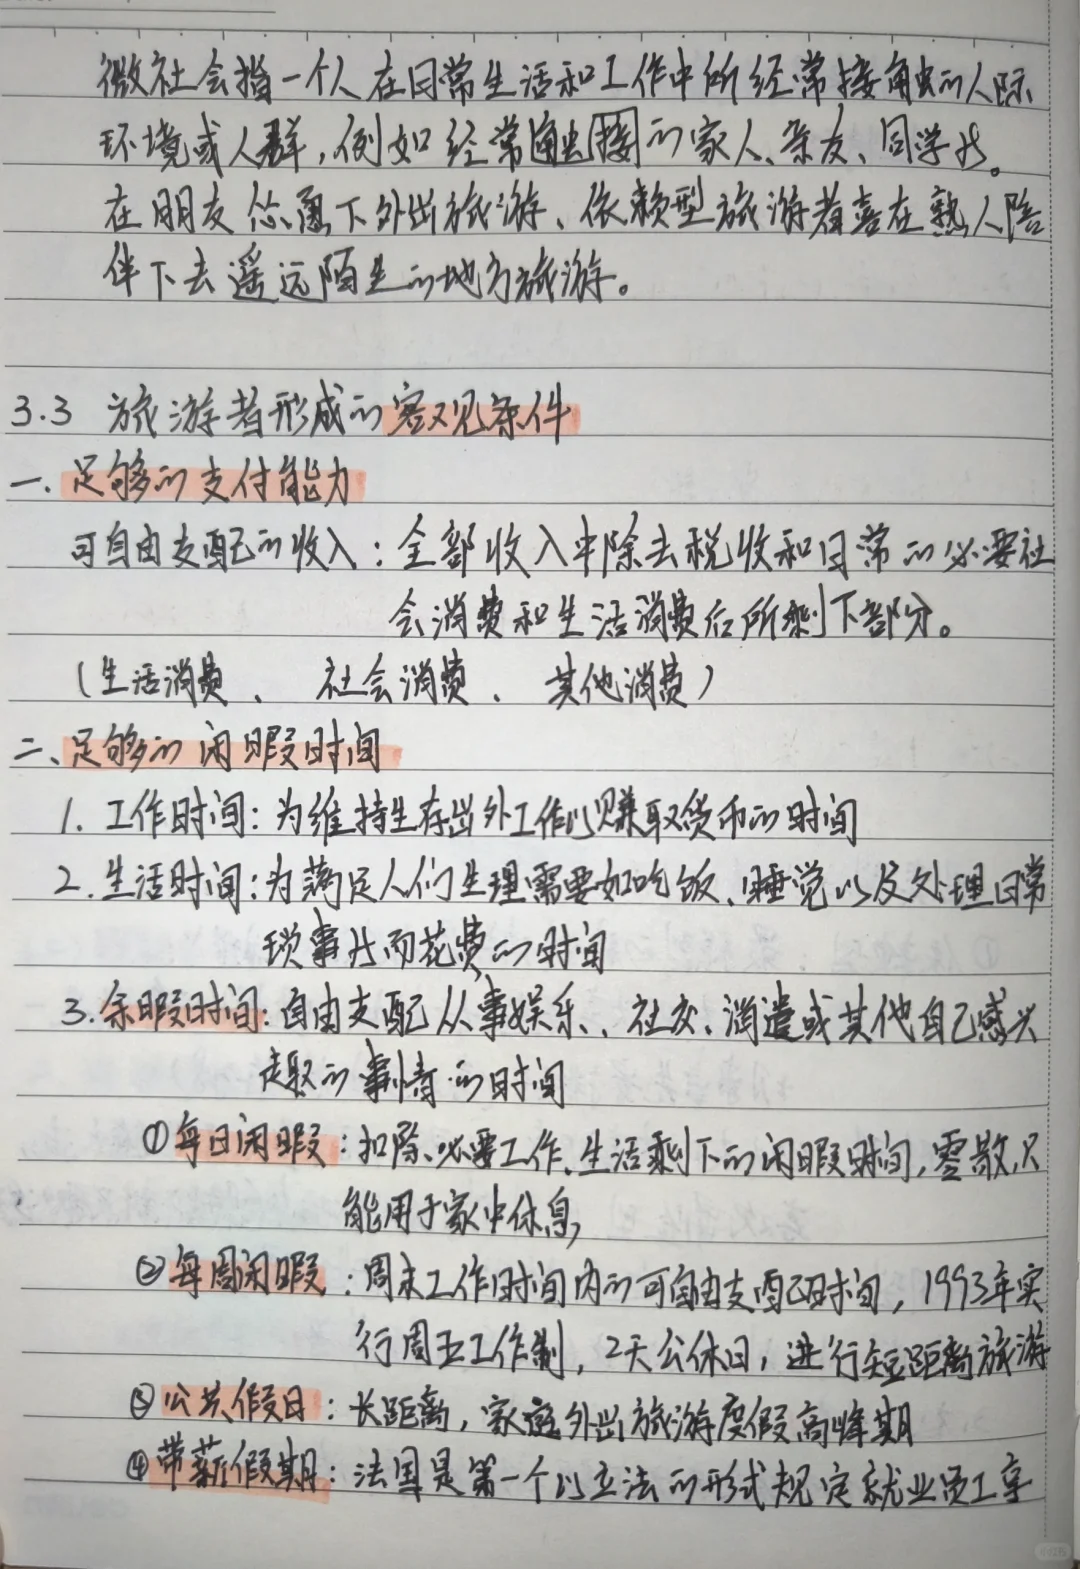 微社会指一个人在日常生活和工作中所经常接触的人际
环境或人群，例如经常触接的家人、亲友、同学等。
在朋友怂恿下外出旅游、依赖型旅游者喜在熟人陪
伴下去遥远陌生的地方旅游。
3.3 旅游者形成的客观条件
一、足够的支付能力
可自由支配的收入：全部收入中除去税收和日常的必要社
会消费和生活消费后所剩下部分。
（生活消费、 社会消费、 其他消费）
二、足够的闲暇时间
1. 工作时间：为维持生存出外工作以赚取货币的时间
2. 生活时间：为满足人们生理需要如吃饭、睡觉以及处理日常
琐事等而花费的时间
3. 余暇时间：自由支配从事娱乐、社交、消遣或其他自己感兴
趣的事情的时间
①每日闲暇：扣除必要工作、生活剩下的闲暇时间，零散，只
能用于家中休息
②每周闲暇：周末工作时间内的可自由支配时间，1993年实
行周五工作制，2天公休日，进行短距离旅游
③公共假日：长距离，家庭外出旅游度假高峰期
④带薪假期：法国是第一个以立法的形式规定就业员工享
小红书